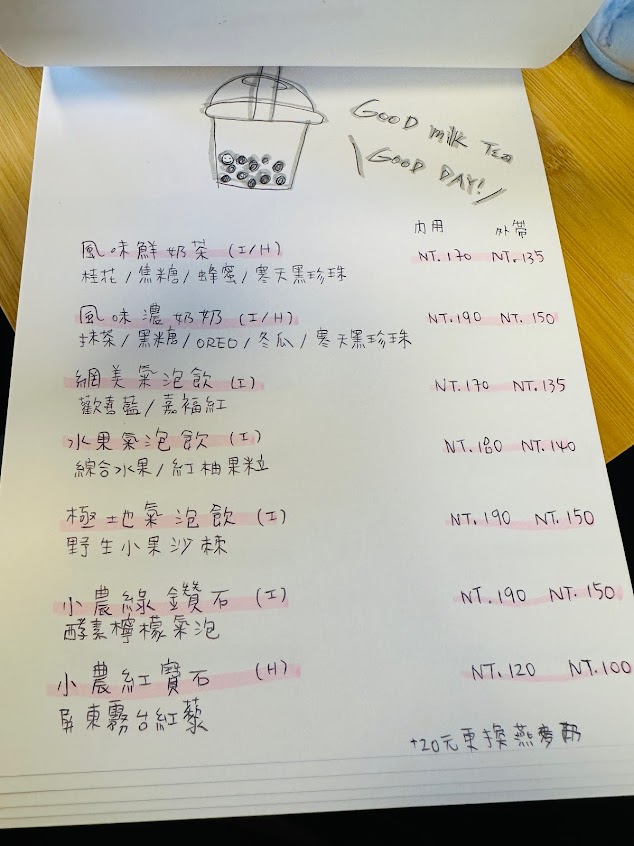 GOOD milk TEA
GOOD DAY!
內用 外帶
風味鮮奶茶 (I/H) NT.170 NT.135
桂花/焦糖/蜂蜜/寒天黑珍珠
風味濃奶奶 (I/H) NT.190 NT.150
抹茶/黑糖/OREO/冬瓜/寒天黑珍珠
網美氣泡飲 (I) NT.170 NT.135
歡喜藍/嘉福紅
水果氣泡飲 (I) NT.180 NT.140
綜合水果/紅柚果粒
極地氣泡飲 (I) NT.190 NT.150
野生小果沙棘
小農綠鑽石 (I) NT.190 NT.150
酵素檸檬氣泡
小農紅寶石 (H) NT.120 NT.100
屏東霧台紅藜
+20元更換燕麥奶